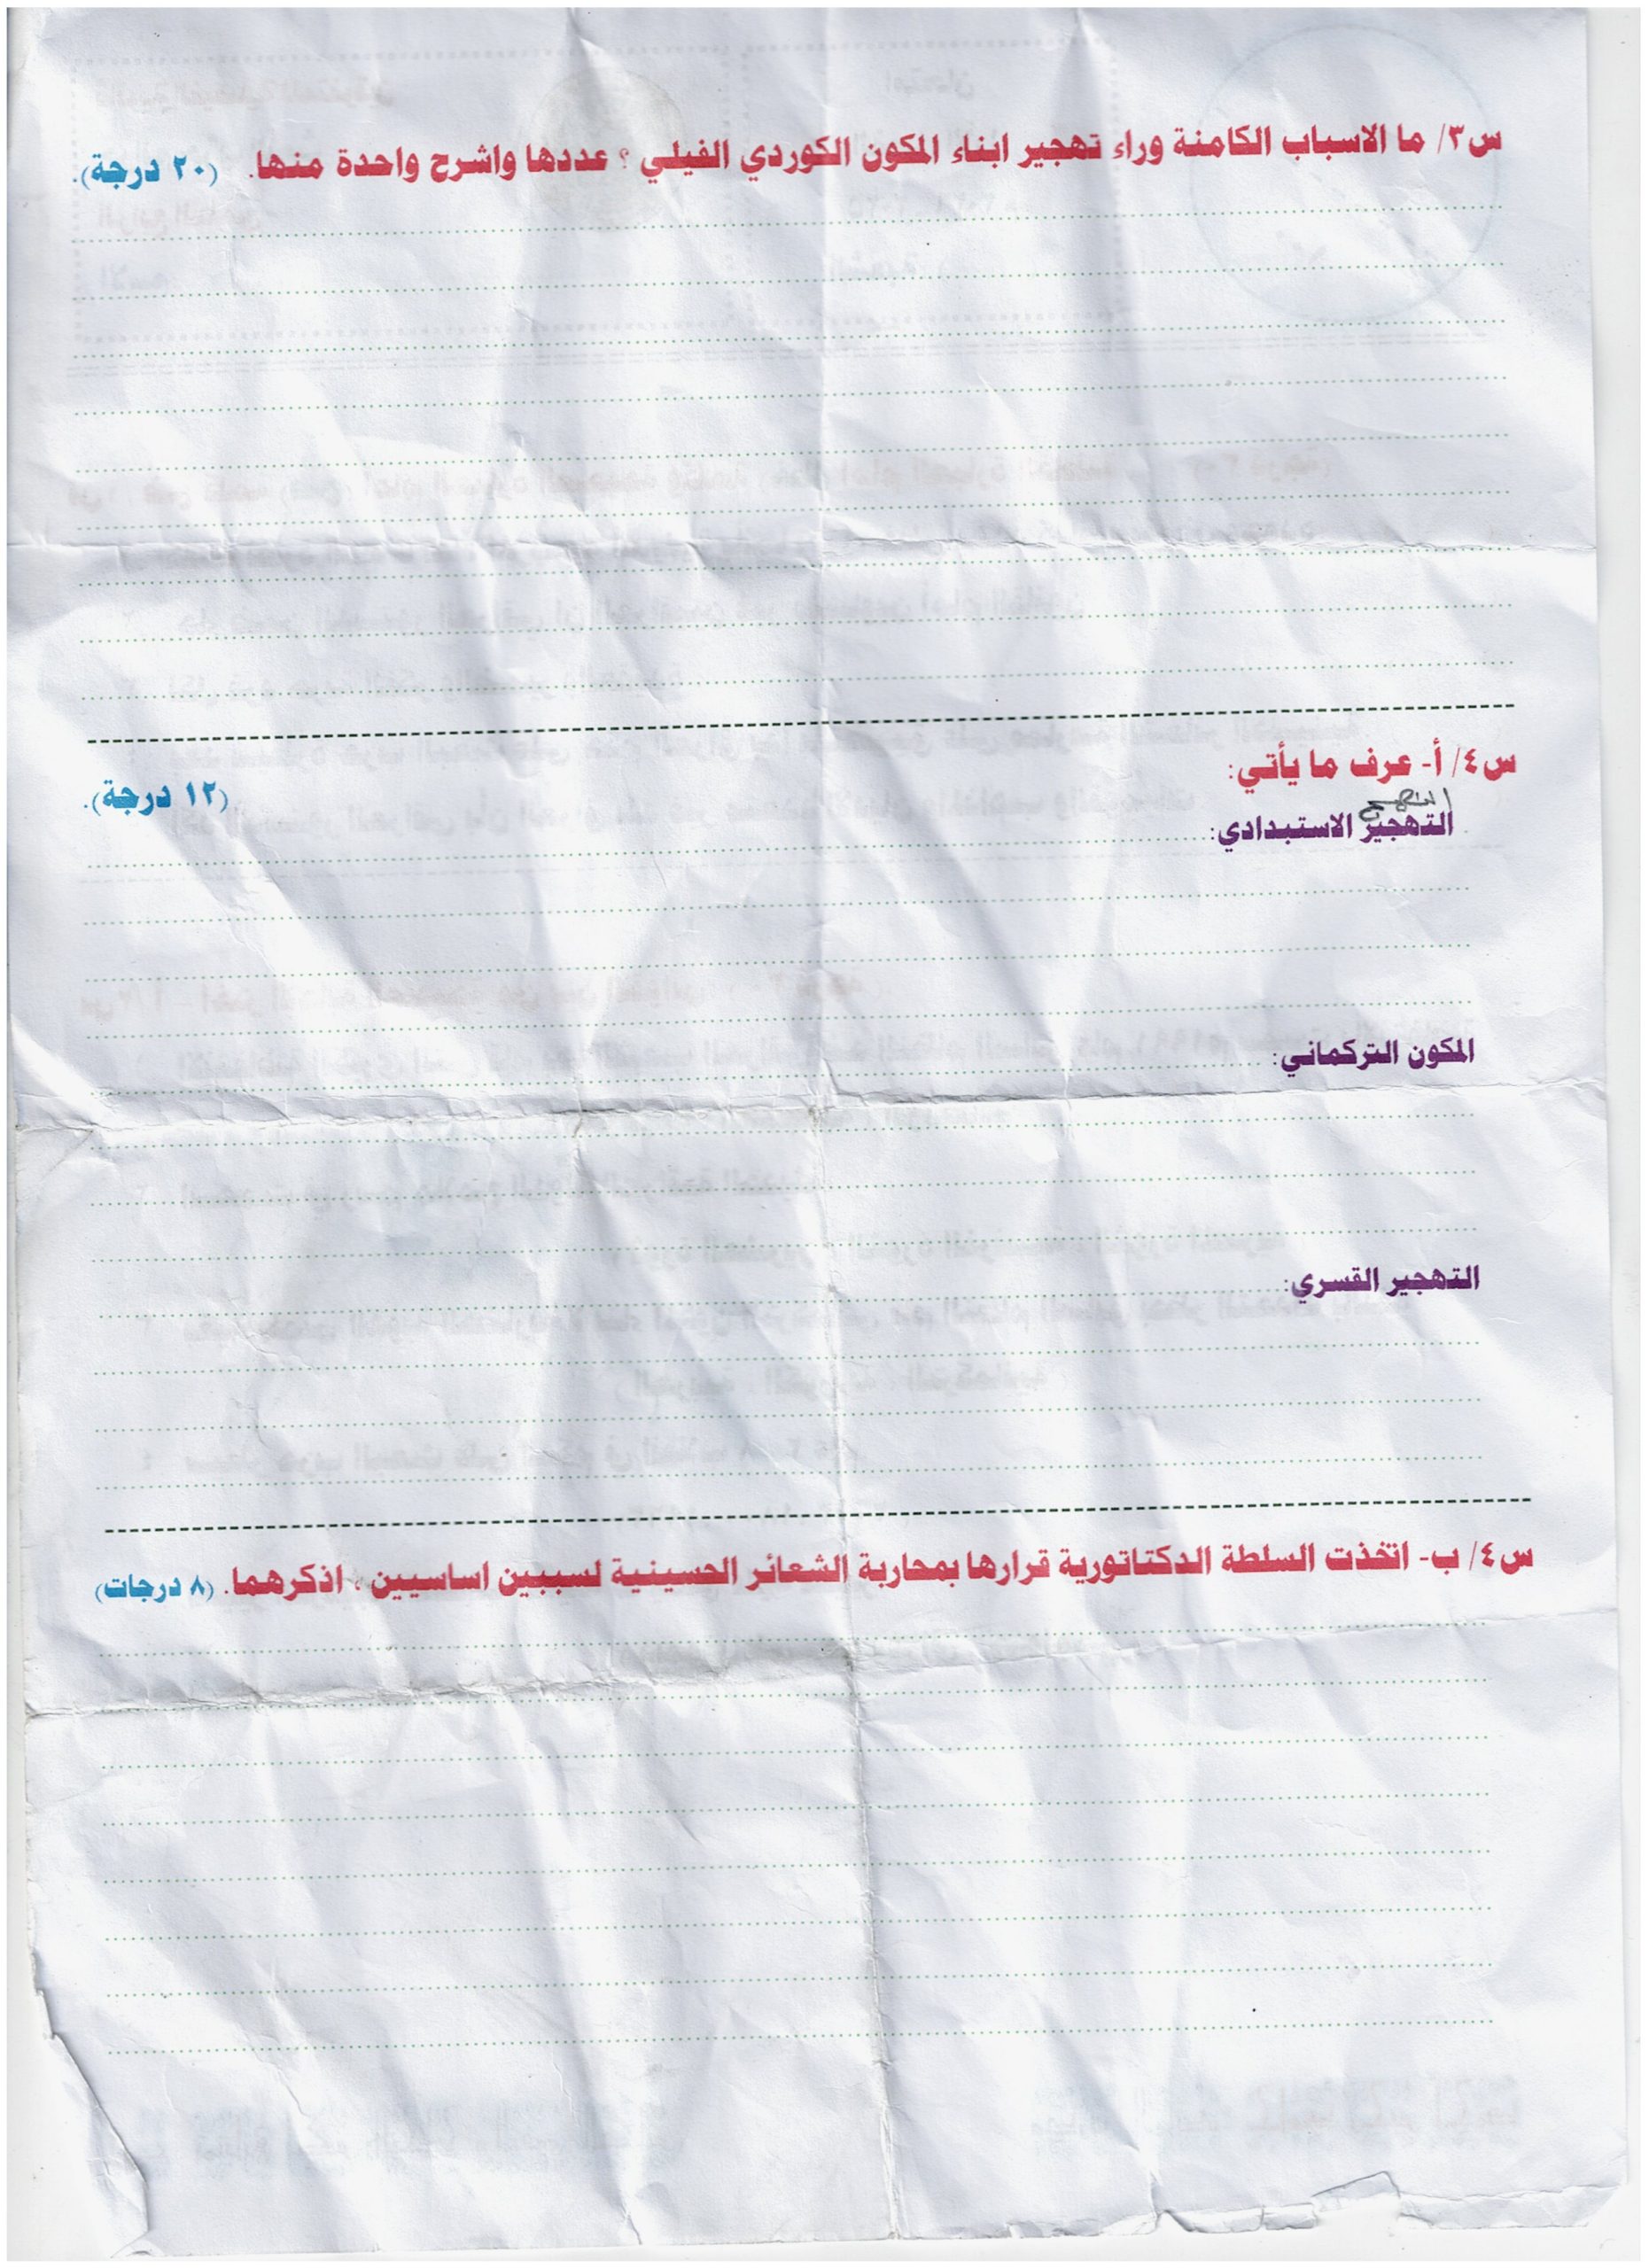 س٣/ ما الاسباب الكامنة وراء تهجير ابناء المكون الكوردي الفيلي ؟ عددها واشرح واحدة منها. (٢٠ درجة).
س٤/ أ- عرف ما يأتي: (١٢ درجة).
النهج
التهجير الاستبدادي:
المكون التركماني:
التهجير القسري:
س٤/ ب- اتخذت السلطة الدكتاتورية قرارها بمحاربة الشعائر الحسينية لسببين اساسيين ، اذكرهما. (٨ درجات)